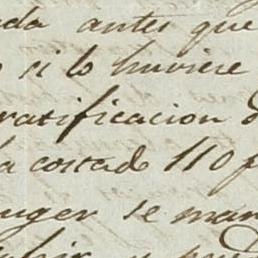 ada antes que
si lo huviere
ratificacion d
la costado 110 p
uger se man